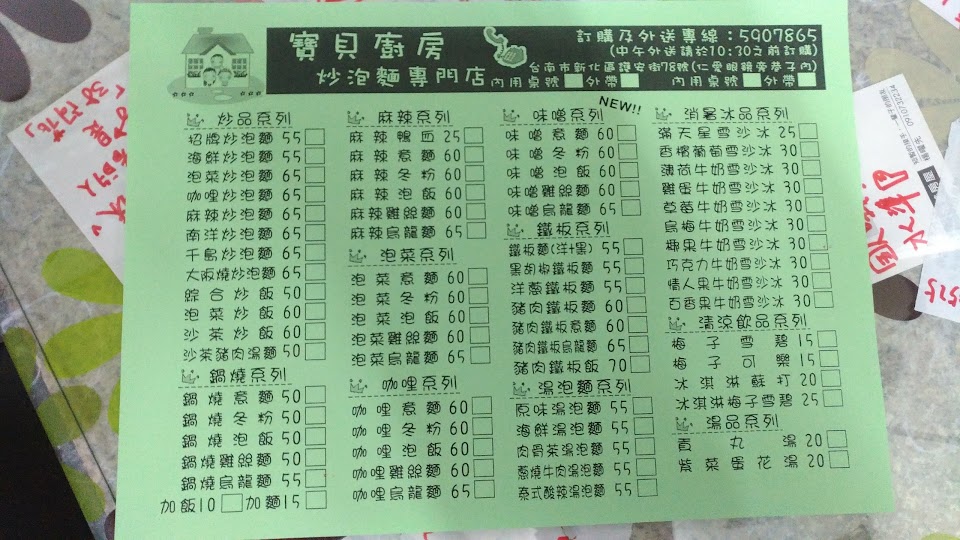 寶貝廚房
炒泡麵專門店
訂購及外送專線：5907865
(中午外送請於10:30之前訂購)
台南市新化區護安街78號(仁愛眼鏡旁巷子內)
內用桌號 外帶 內用桌號 外帶
炒品系列
招牌炒泡麵 55
海鮮炒泡麵 55
泡菜炒泡麵 65
咖哩炒泡麵 65
麻辣炒泡麵 65
南洋炒泡麵 65
千島炒泡麵 65
大阪燒炒泡麵 65
綜合炒飯 50
泡菜炒飯 60
沙茶炒飯 60
沙茶豬肉湯麵 50
鍋燒系列
鍋燒煮麵 50
鍋燒冬粉 50
鍋燒泡飯 50
鍋燒雞絲麵 50
鍋燒烏龍麵 55
加飯10 加麵15
麻辣系列
麻辣鴨血 25
麻辣煮麵 60
麻辣冬粉 60
麻辣泡飯 60
麻辣雞絲麵 60
麻辣烏龍麵 65
泡菜系列
泡菜煮麵 60
泡菜冬粉 60
泡菜泡飯 60
泡菜雞絲麵 60
泡菜烏龍麵 65
咖哩系列
咖哩煮麵 60
咖哩冬粉 60
咖哩泡飯 60
咖哩雞絲麵 60
咖哩烏龍麵 65
味噌系列 NEW!!
味噌煮麵 60
味噌冬粉 60
味噌泡飯 60
味噌雞絲麵 60
味噌烏龍麵 65
鐵板系列
鐵板麵(洋+黑) 55
黑胡椒鐵板麵 55
洋蔥鐵板麵 55
豬肉鐵板麵 60
豬肉鐵板煮麵 60
豬肉鐵板烏龍麵 65
豬肉鐵板飯 70
湯泡麵系列
原味湯泡麵 55
海鮮湯泡麵 55
肉骨茶湯泡麵 55
蔥燒牛肉湯泡麵 55
泰式酸辣湯泡麵 55
消暑冰品系列
滿天星雪沙冰 25
香檳葡萄雪沙冰 30
薄荷牛奶雪沙冰 30
雞蛋牛奶雪沙冰 30
草莓牛奶雪沙冰 30
烏梅牛奶雪沙冰 30
椰果牛奶雪沙冰 30
巧克力牛奶雪沙冰 30
情人果牛奶雪沙冰 30
百香果牛奶雪沙冰 30
清涼飲品系列
梅子雪碧 15
梅子可樂 15
冰淇淋蘇打 20
冰淇淋梅子雪碧 25
湯品系列
貢丸湯 20
紫菜蛋花湯 20